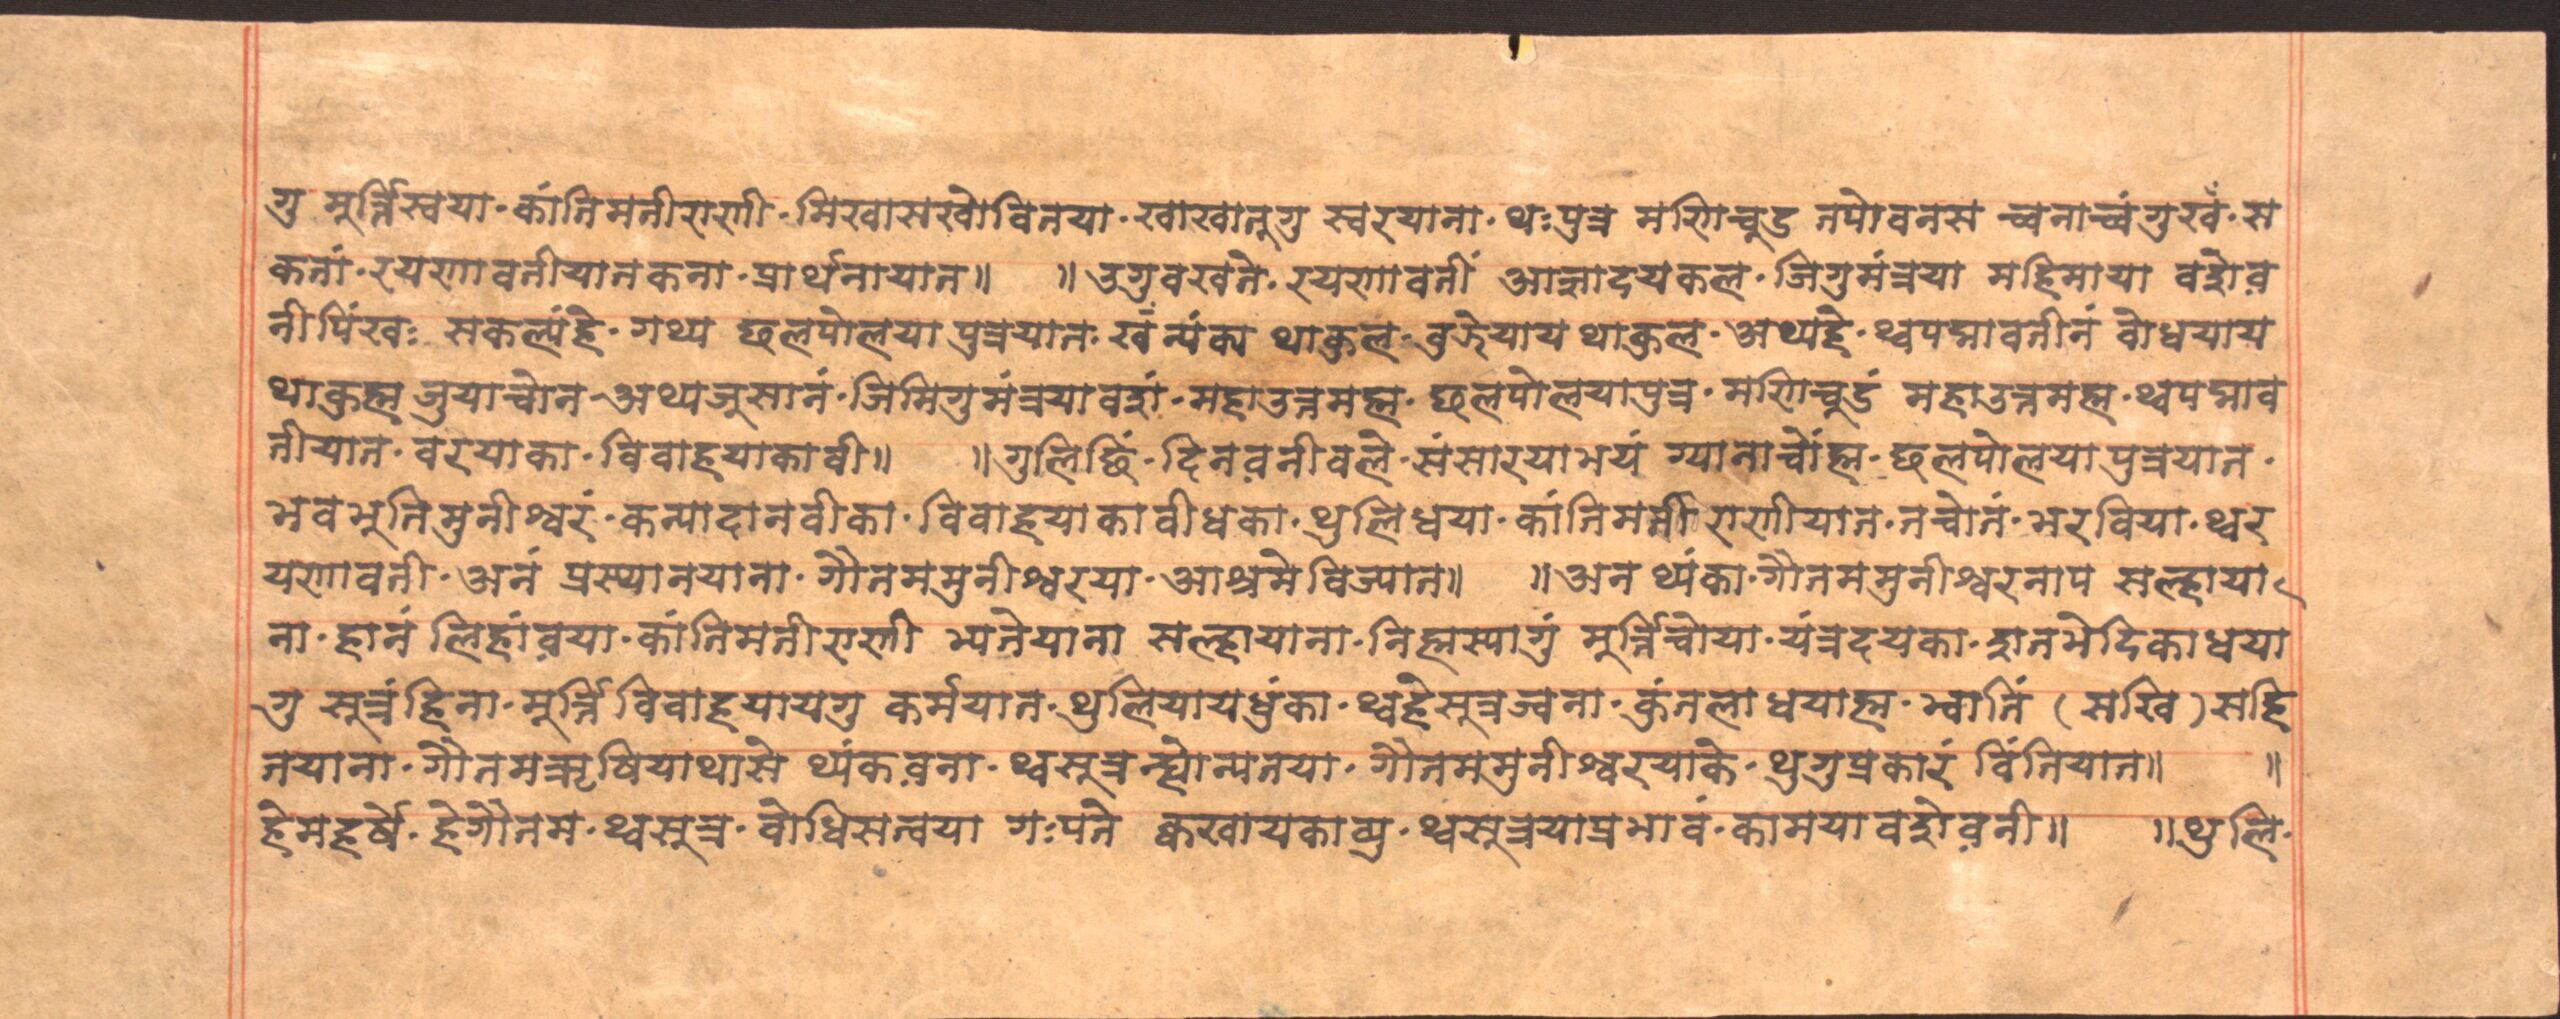 गु मूर्त्तिस्वया·कांतिमतीराणी·मिखासखोवितया·खाखातुगु स्वरयाना·थःपुत्र मणिचूड तपोवनस च्वनाच्वंगुखँ·स
कतां·रयणावतीयातकना·प्रार्थनायात॥ ॥उगुवखते·रयणावतीं आज्ञादयकल·जिगुमंत्रया महिमाया वशेव़
नीपिंखः सकल्यंहे·गथ्य छलपोलया पुत्रयात·खँन्यंका थाकुल·वुझेयाय थाकुल·अथ्यहे·थ्वपद्मावतीनं वोधयाय
थाकुह्म जुयाच्वोन·अथ्यजूसानं·जिमिगुमंत्रयावशं·महाउत्तमह्म·छलपोलयापुत्र·मणिचूडं महाउत्तमह्म·थ्वपद्माव
तीयात·वरयाका·विवाहयाकावी॥ ॥गुलिछिं·दिनव़नीवले·संसारयाभयं ग्यानाच्वोंह्म·छलपोलया पुत्रयात·
भवभुतिमुनीश्वरं·कन्यादानवीका·विवाहयाकावीधका·थुलिधया·कांतिमतीराणीयात·नच्वोतं·भरविया·थ्वर
यणावती·अनं प्रस्थानयाना·गौतममुनीश्वरया·आश्रमे विज्यात॥ ॥अन थ्यंका·गौतममुनीश्वरनाप सल्हाया
ना·हानं लिहांव़या·कांतिमतीराणी भ्यतेयाना सल्हायाना·निह्मस्यागुं मूर्त्तिच्वोया·यंत्रदयका·शतभेदिकाधया
गु सूत्रंहिना·मूर्त्ति विवाहयायगु कर्मयात·थुलियायधुंका·थ्वहेसूत्रज्वना·कुंतलाधयाह्म·भ्वातिं (सखि) सहि
तयाना·गौतमऋषियाथासे थ्यंकव़ना·थ्वसूत्रन्ह्योन्यतया·गौतममुनीश्वरयाके·थुगुप्रकारं विंतियात॥ ॥
हेमहर्षे·हेगौतम·थ्वसूत्र·वोधिसत्वया गःपते क्वखायकाव्यु·थ्वसूत्रयाप्रभावं·कामयावशेव़नी॥ ॥थुलि·